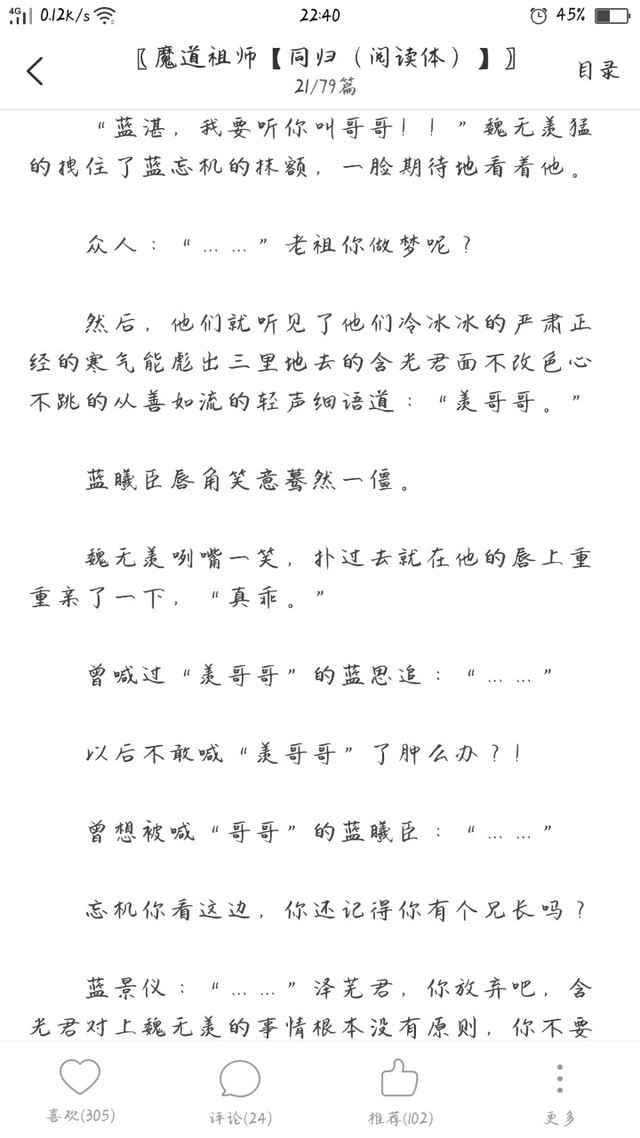 4G 0.12K/s 22:40 45%
〖魔道祖师【同归（阅读体）】〗
21/79篇
目录
“蓝湛，我要听你叫哥哥！！”魏无羡猛
的拽住了蓝忘机的抹额，一脸期待地看着他。
众人：“……”老祖你做梦呢？
然后，他们就听见了他们冷冰冰的严肃正
经的寒气能彪出三里地去的含光君面不改色心
不跳的从善如流的轻声细语道：“羡哥哥。”
蓝曦臣唇角笑意蓦然一僵。
魏无羡咧嘴一笑，扑过去就在他的唇上重
重亲了一下，“真乖。”
曾喊过“羡哥哥”的蓝思追：“……”
以后不敢喊“羡哥哥”了肿么办？！
曾想被喊“哥哥”的蓝曦臣：“……”
忘机你看这边，你还记得你有个兄长吗？
蓝景仪：“……”泽芜君，你放弃吧，含
光君对上魏无羡的事情根本没有原则，你不要
喜欢(305)
评论(24)
推荐(102)
更多